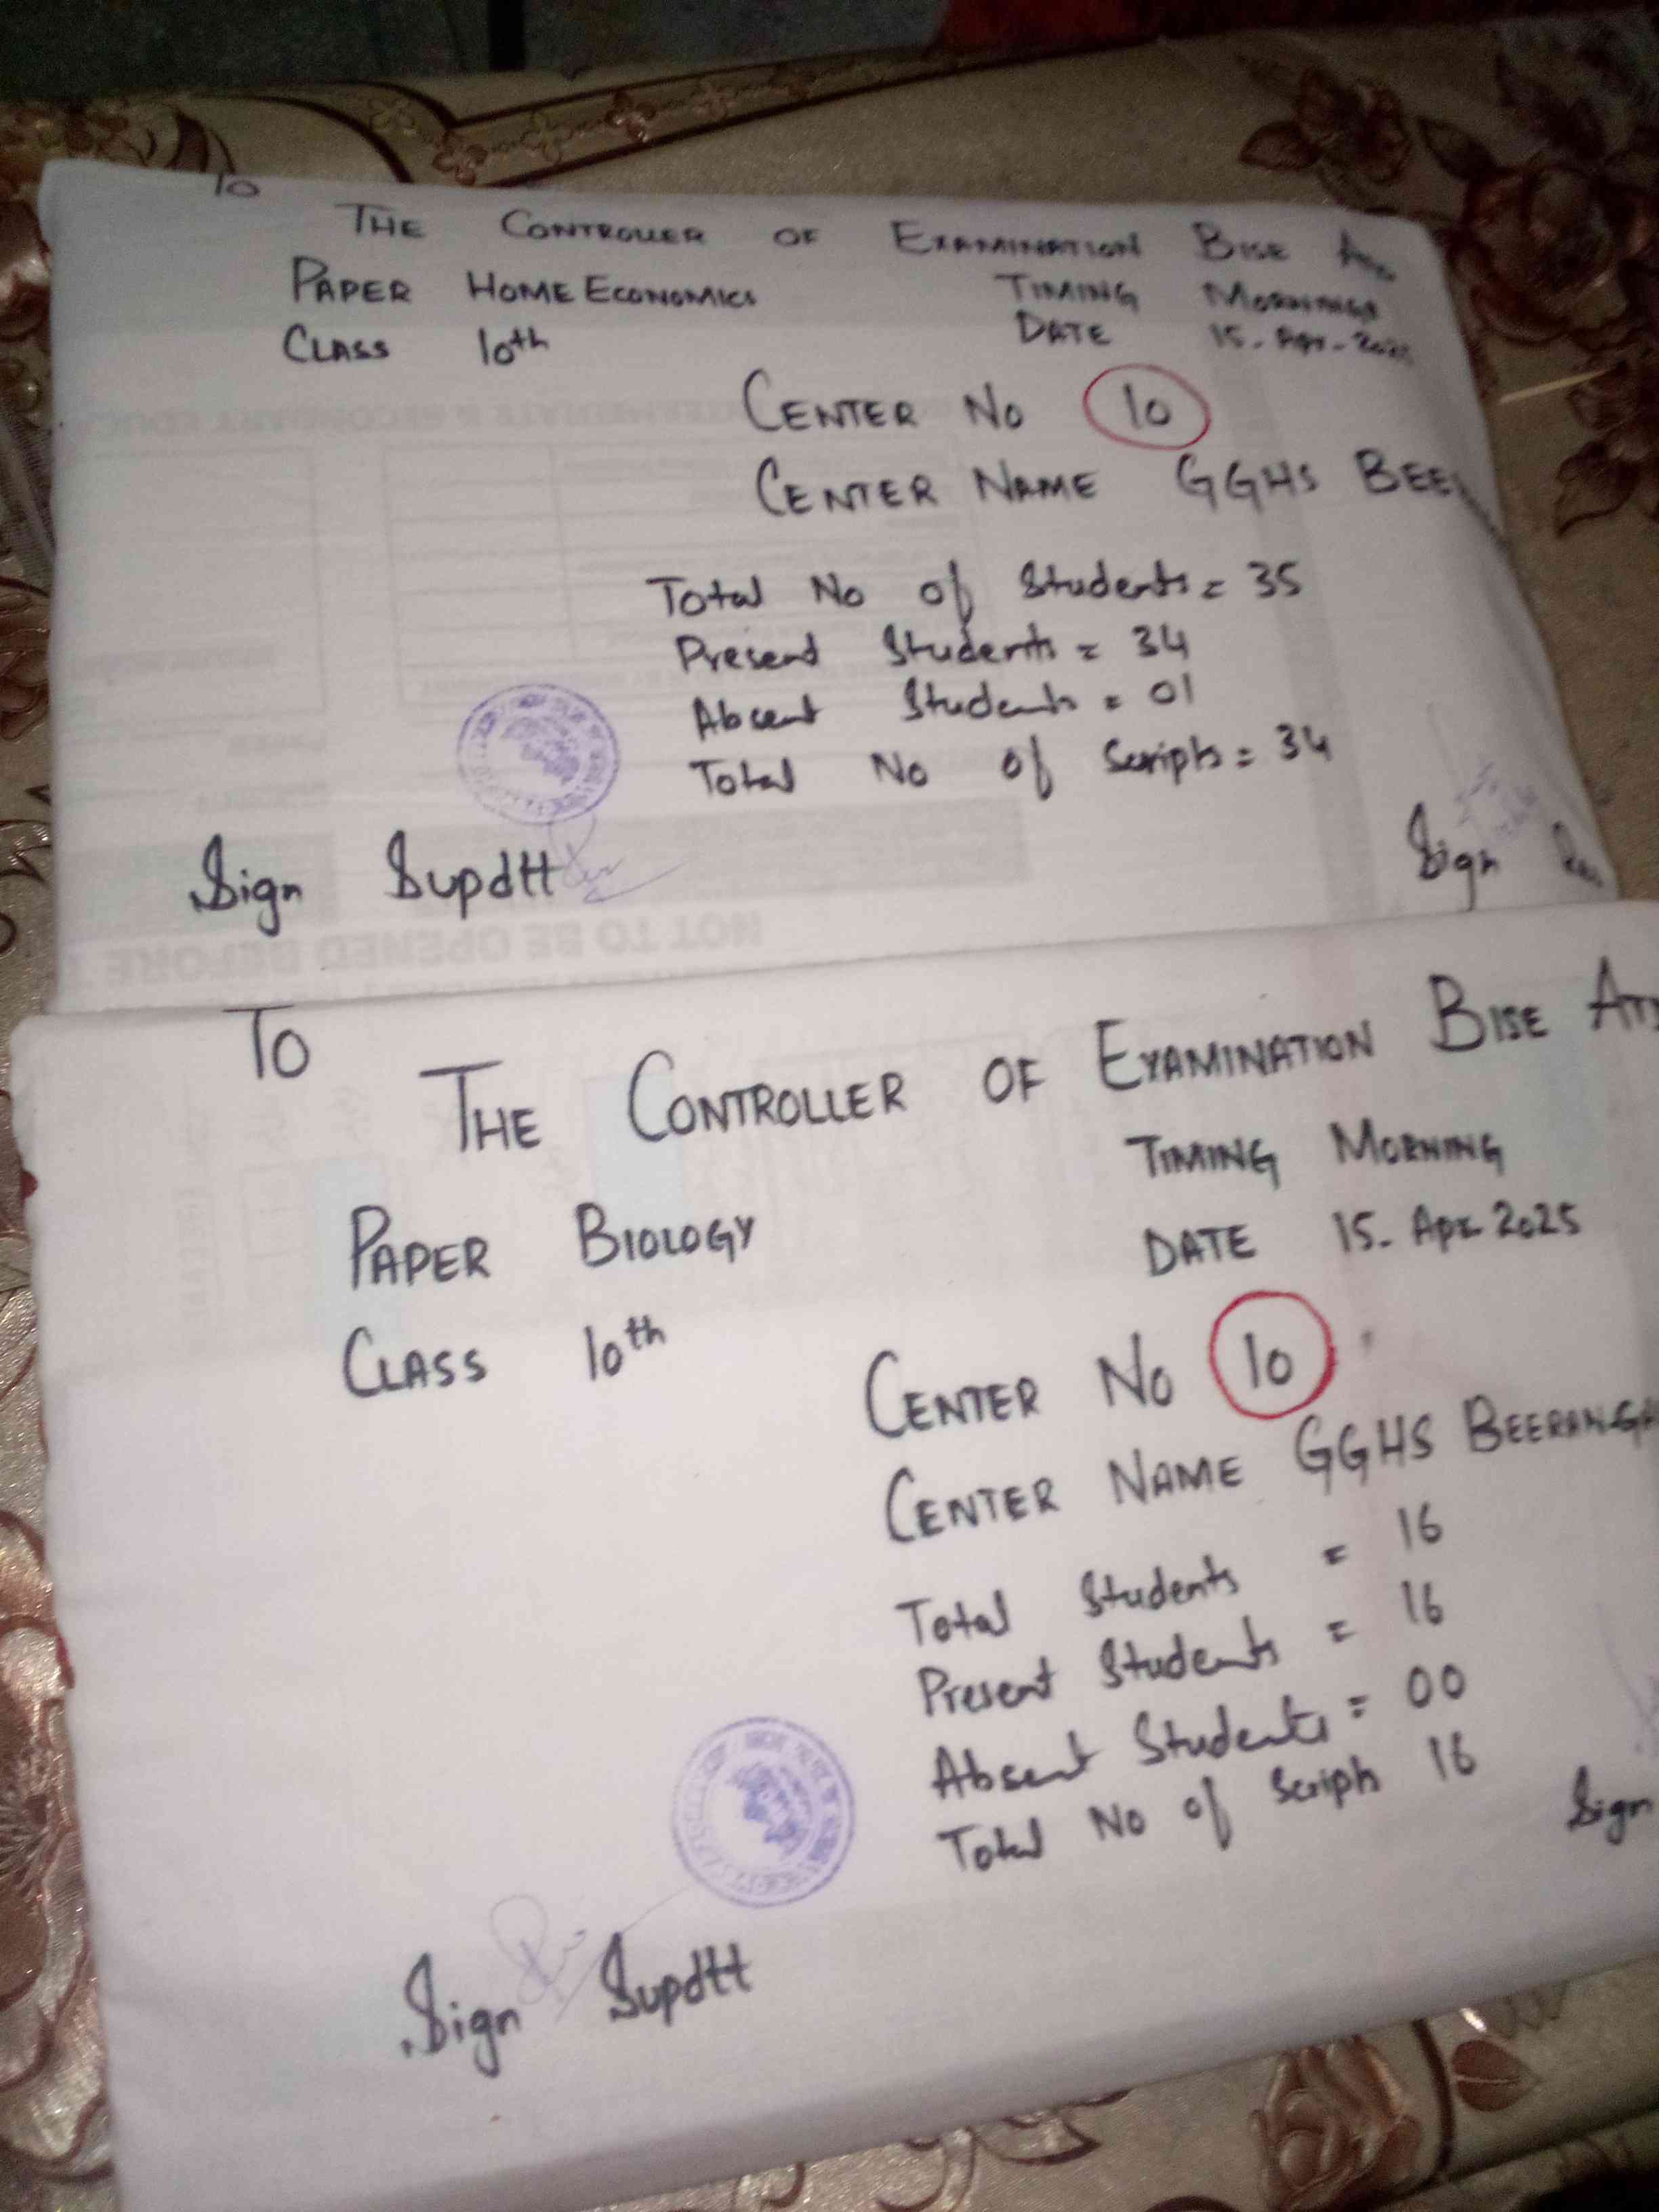 To
THE CONTROLLER OF EXAMINATION BISE
PAPER HOME ECONOMICS TIMING MORNING
CLASS 10th DATE 15. Apr. 2025
CENTER NO 10
CENTER NAME GGHS BEE
Total No of Students = 35
Present Students = 34
Absent Students = 01
Total No of Scripts = 34
Sign Supdtt Sign
NOT TO BE OPENED BEFORE
To
THE CONTROLLER OF EXAMINATION BISE
TIMING MORNING
PAPER BIOLOGY
DATE 15. Apr 2025
CLASS 10th
CENTER NO 10
CENTER NAME GGHS BEERANGA
Total Students = 16
Present Students = 16
Absent Students = 00
Total No of Scripts 16
Sign
Sign Supdtt